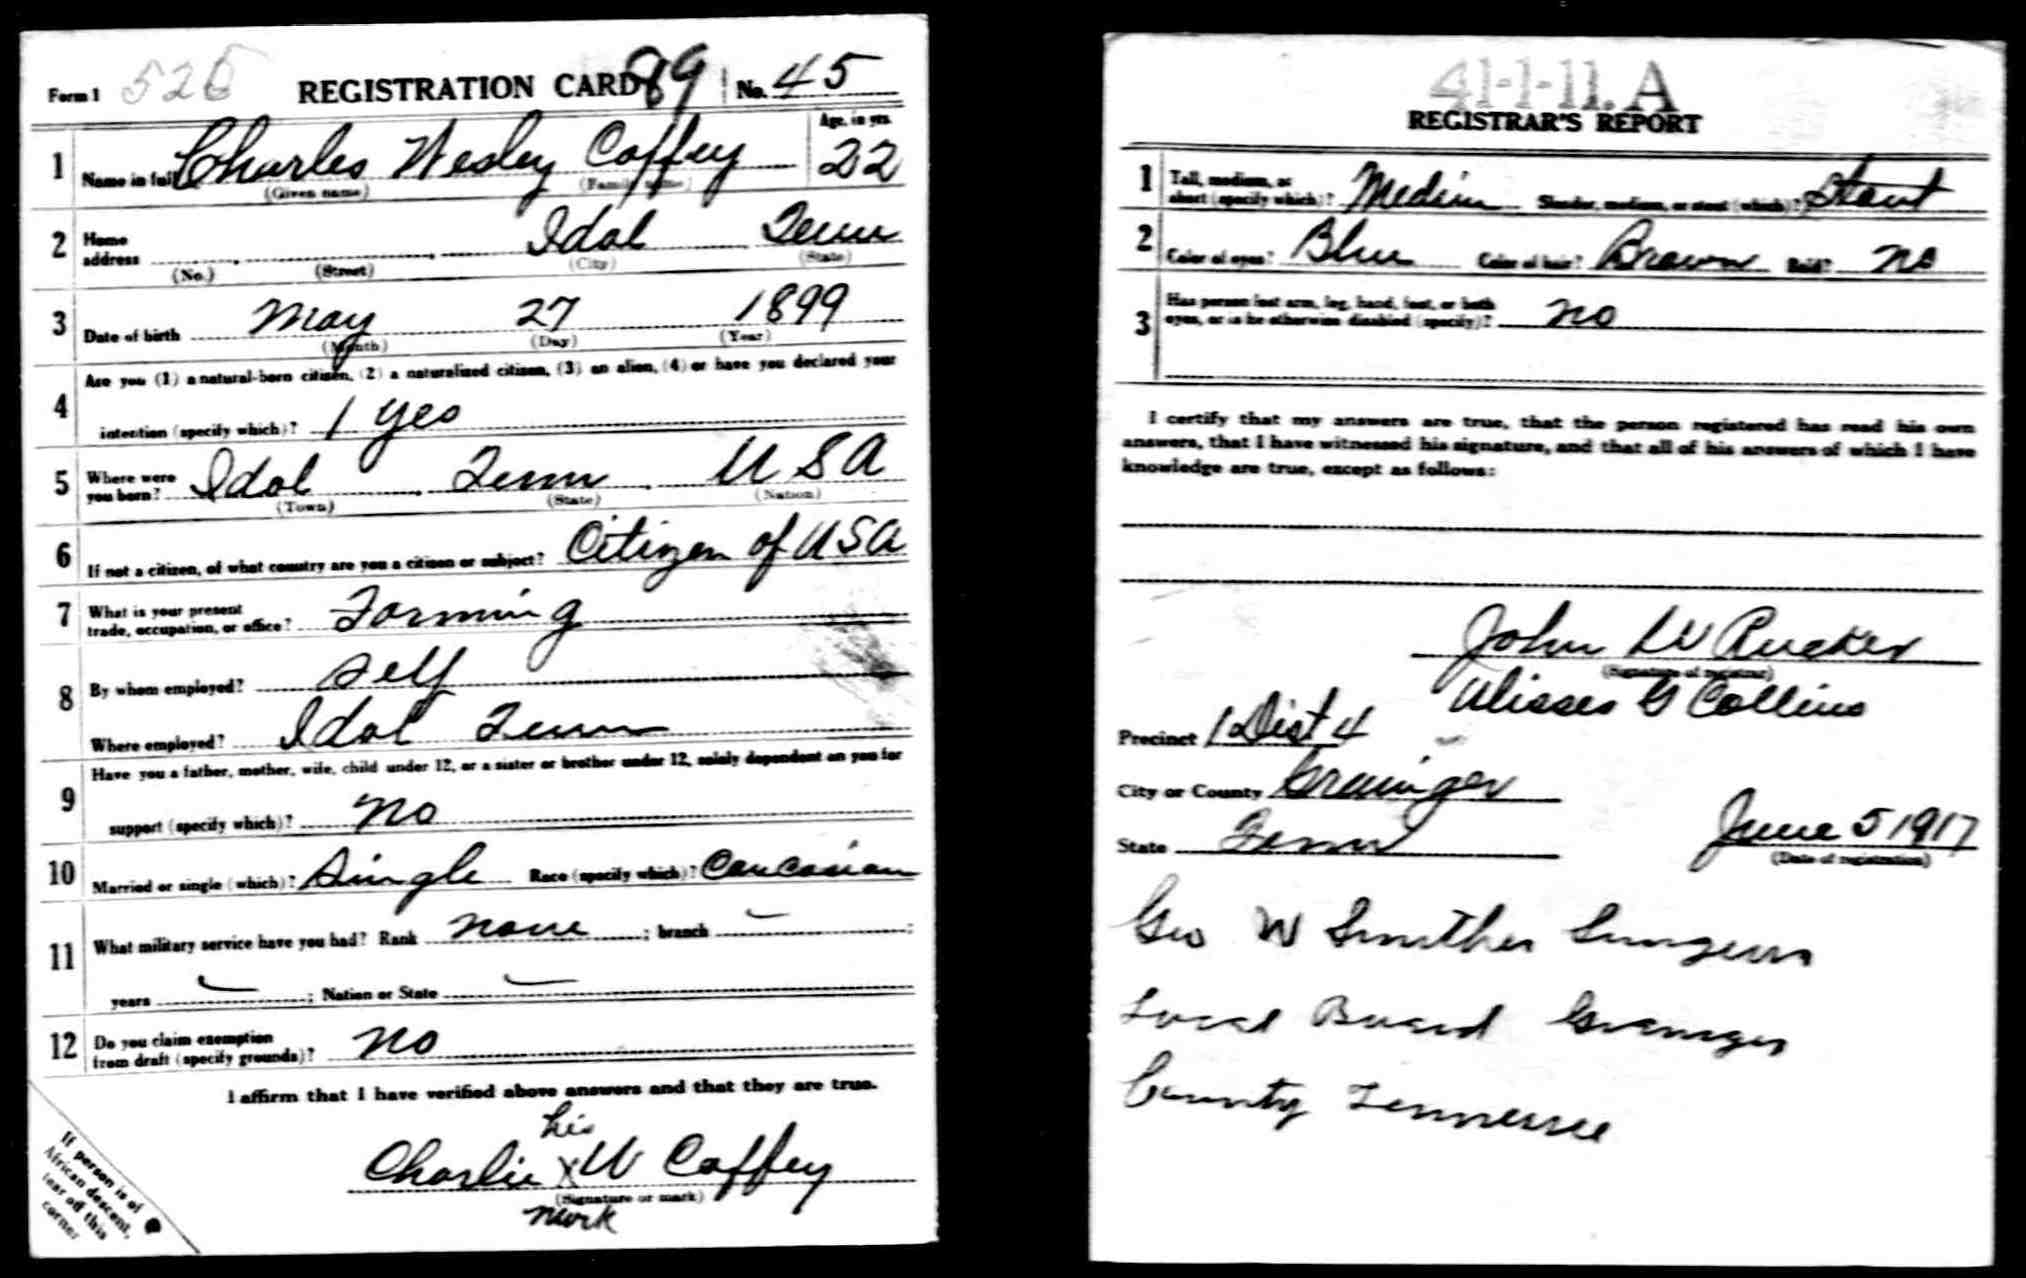 Form 1 526 REGISTRATION CARD 89 No. 45
1 Name in full Charles Wesley Coffey Age, in yrs. 22
(Given name) (Family name)
2 Home address Idol Tenn
(No.) (Street) (City) (State)
3 Date of birth May 27 1899
(Month) (Day) (Year)
4 Are you (1) a natural-born citizen, (2) a naturalized citizen, (3) an alien, (4) or have you declared your
intention (specify which)? 1 yes
5 Where were you born? Idol Tenn U S A
(Town) (State) (Nation)
6 If not a citizen, of what country are you a citizen or subject? Citizen of USA
7 What is your present trade, occupation, or office? Farming
8 By whom employed? Self
Where employed? Idol Tenn
9 Have you a father, mother, wife, child under 12, or a sister or brother under 12, solely dependent on you for
support (specify which)? No
10 Married or single (which)? Single Race (specify which)? Caucasian
11 What military service have you had? Rank none ; branch ;
years ; Nation or State
12 Do you claim exemption from draft (specify grounds)? No
I affirm that I have verified above answers and that they are true.
his
Charlie X W Coffey
(Signature or mark)
mark
If person is of
African descent,
tear off this
corner
41-1-11. A
REGISTRAR'S REPORT
1 Tall, medium, or short (specify which)? Medium Slender, medium, or stout (which)? Stout
2 Color of eyes? Blue Color of hair? Brown Bald? No
3 Has person lost arm, leg, hand, foot, or both eyes, or is he otherwise disabled (specify)? No
I certify that my answers are true, that the person registered has read his own
answers, that I have witnessed his signature, and that all of his answers of which I have
knowledge are true, except as follows:
John W Rucker
(Signature of registrar)
Ulisses G Collins
Precinct 1 Dist 4
City or County Grainger
State Tenn June 5 1917
(Date of registration)
Geo W Smither
Local Board Grainger
County Tennessee